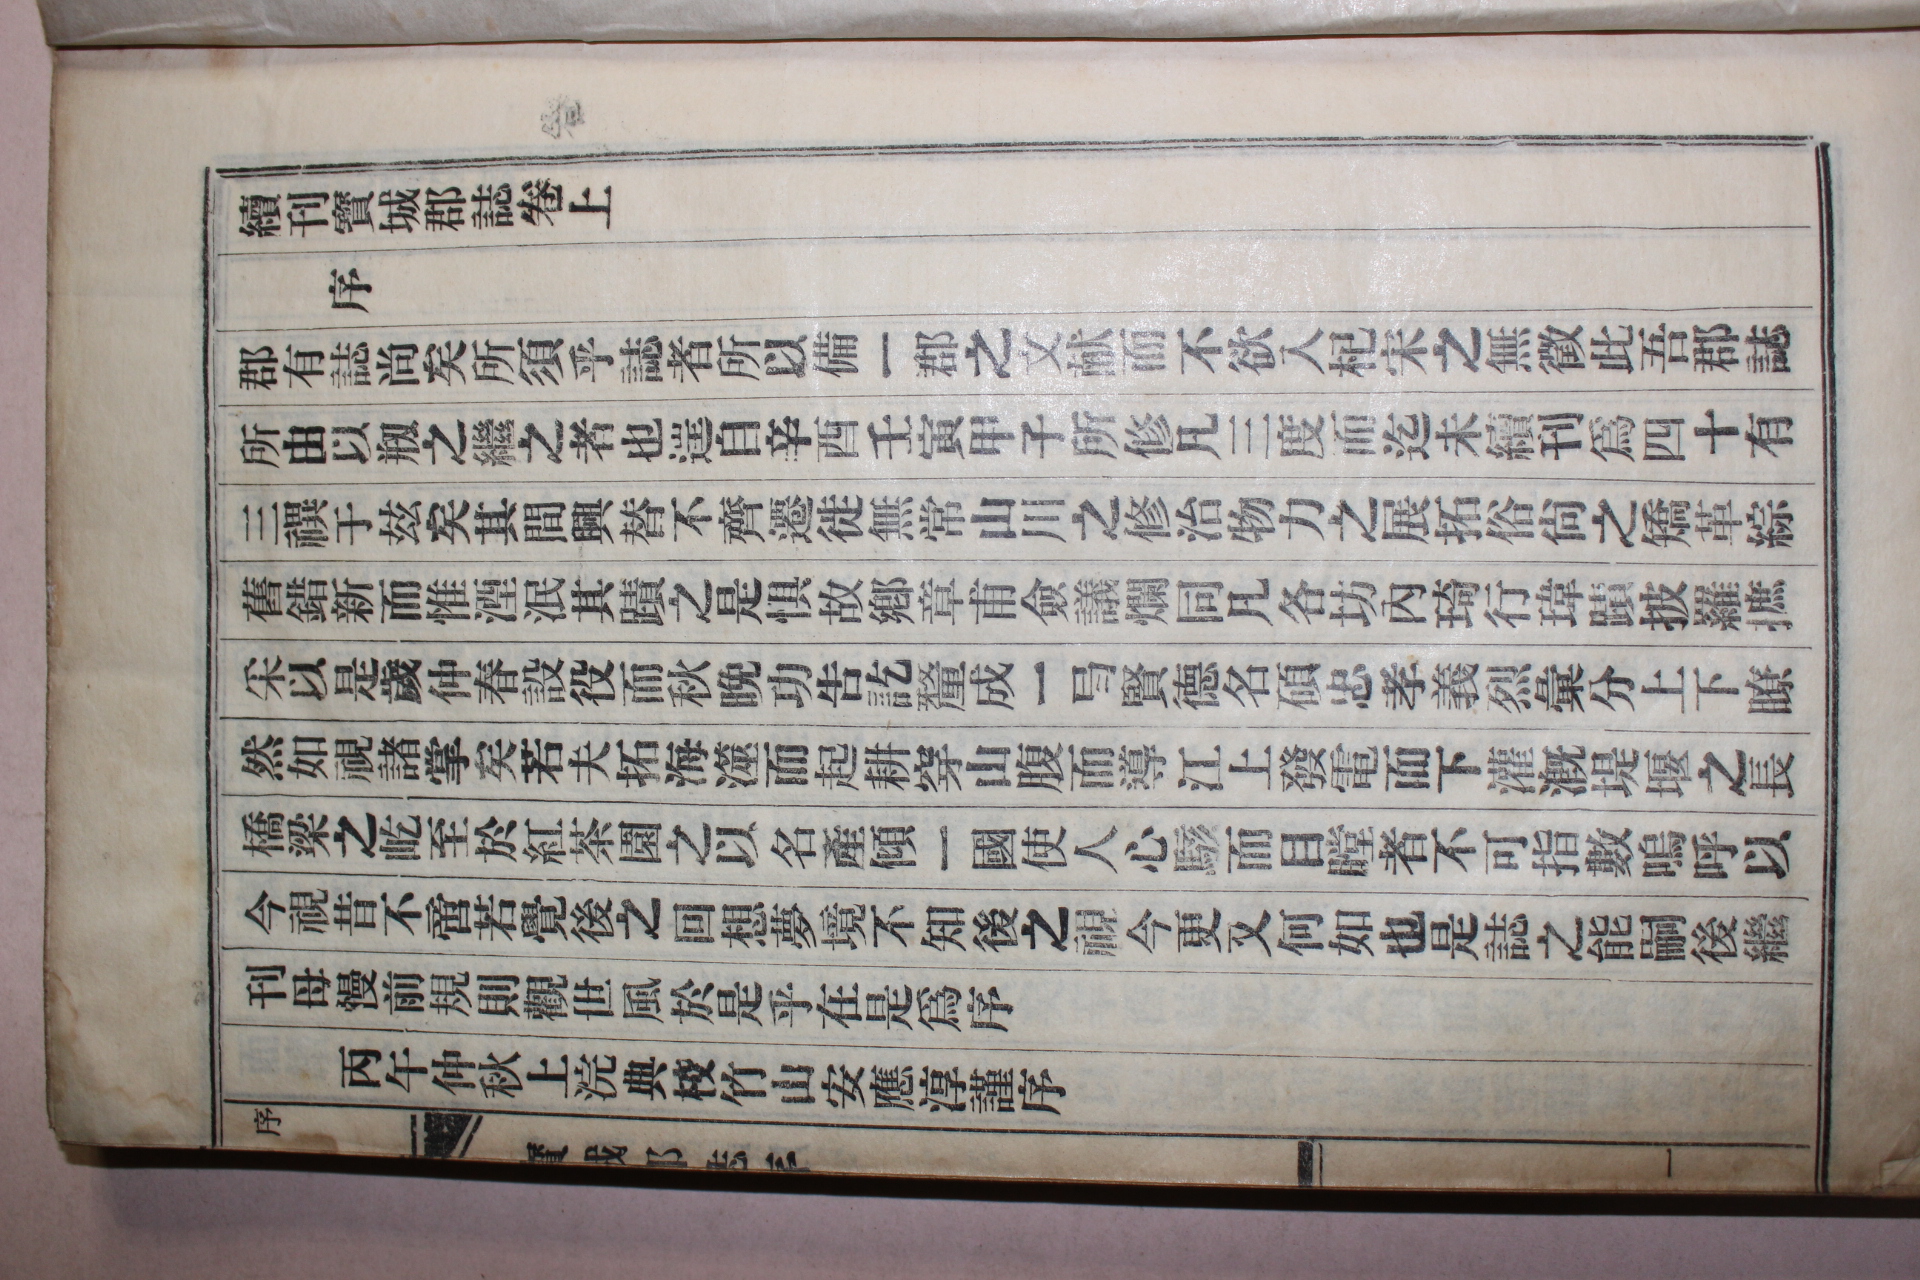 續刊寶城郡誌卷上
序
郡有誌尚矣所須乎誌者所以備一郡之文献而不欲入杞宋之無徵此吾郡誌
所由以刱之繼之者也逞自辛酉壬寅甲子所修凡三度而迄未續刊爲四十有
三禩于玆矣其間興替不齊遷徙無常山川之修治物力之展拓俗尙之矯革綜
舊錯新而惟湮泯其蹟之是惧故鄕章甫僉議爛同凡各坊內琦行瑋蹟披羅摭
采以是歲仲春設役而秋晩功告訖釐成一曷賢德名碩忠孝義烈彙分上下瞭
然如視諸掌矣若夫拓海澨而起耕穿山腹而導江上發電而下灌漑堤堰之長
橋梁之屹至於紅茶園之以名產傾一國使人心駭而目瞠者不可指數嗚呼以
今視昔不啻若覺後之回想夢境不知後之視今更又何如也是誌之能嗣後繼
刊毋慢前規則觀世風於是乎在是爲序
丙午仲秋上浣典校竹山安應淳謹序
序
寶城郡誌序
一